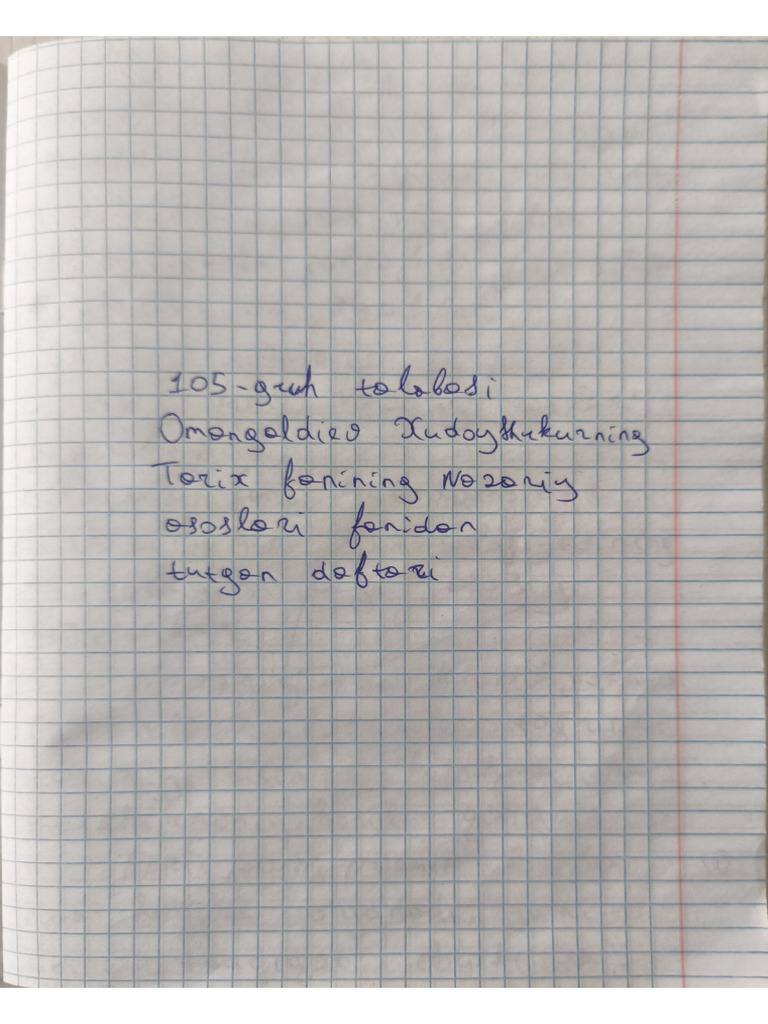 105-gruh talabasi
Omongaldiev Xudoyshukurning
Tarix fanining Nazariy
asoslari fanidan
tutgan daftari